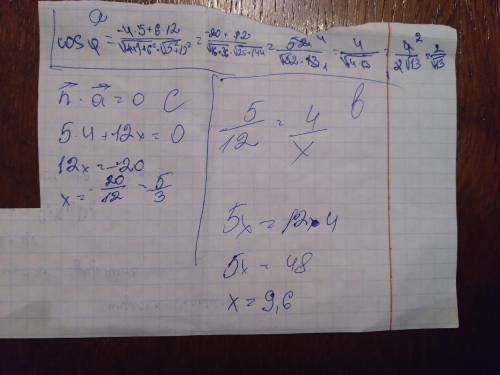 a
cos φ = (-4·5+6·12)/(√((-4)²+6²)·√(5²+12²)) = (-20+72)/(√(16+36)·√(25+144)) = 52/(√52·13) = 4/√(4·13) = 4/(2√13) = 2/√13
n · a = 0 c
5·4+12x=0
12x=-20
x=-20/12=5/3
b
5/12 = 4/x
5x = 12·4
5x = 48
x = 9,6